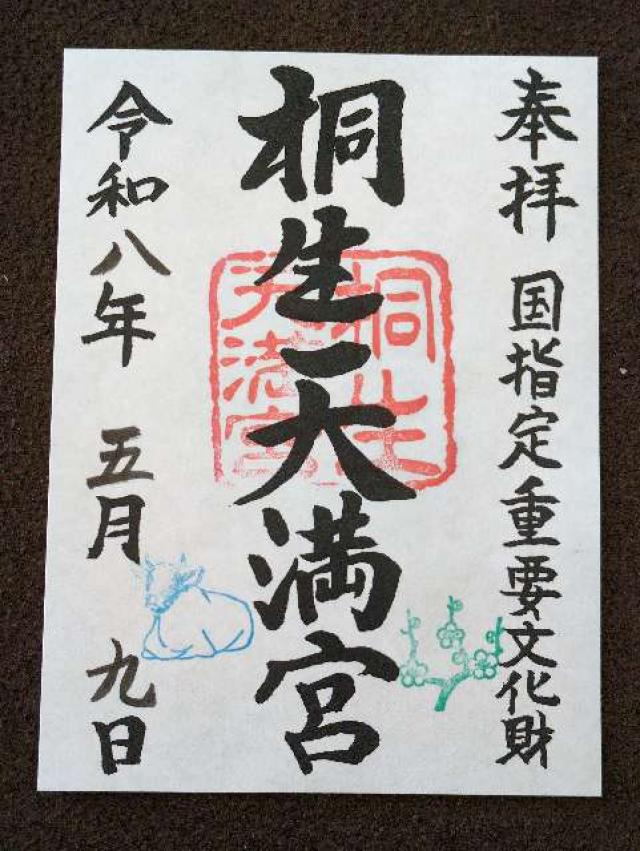 奉拝 国指定重要文化財
桐生天満宮
桐生
天満宮
令和八年 五月 九日